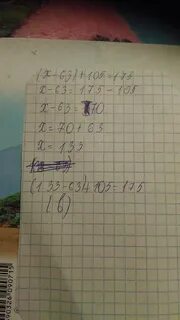 (x-63)+105=175
x-63=175-105
x-63=70
x=70+63
x=133
(133-63)+105=175
(б)